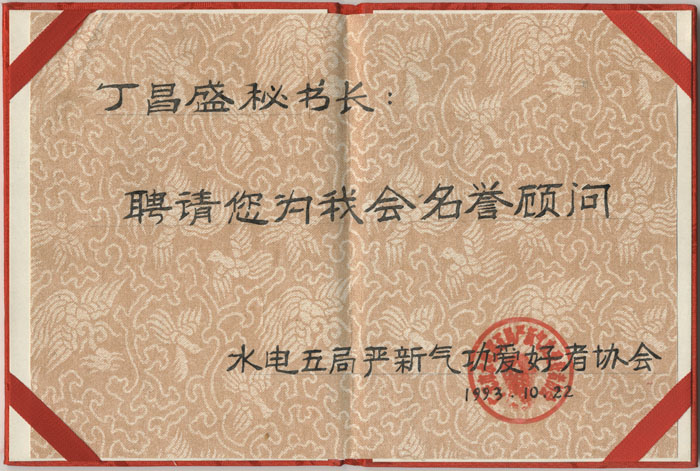 丁昌盛秘书长：
聘请您为我会名誉顾问
水电五局严新气功爱好者协会
1993.10.22